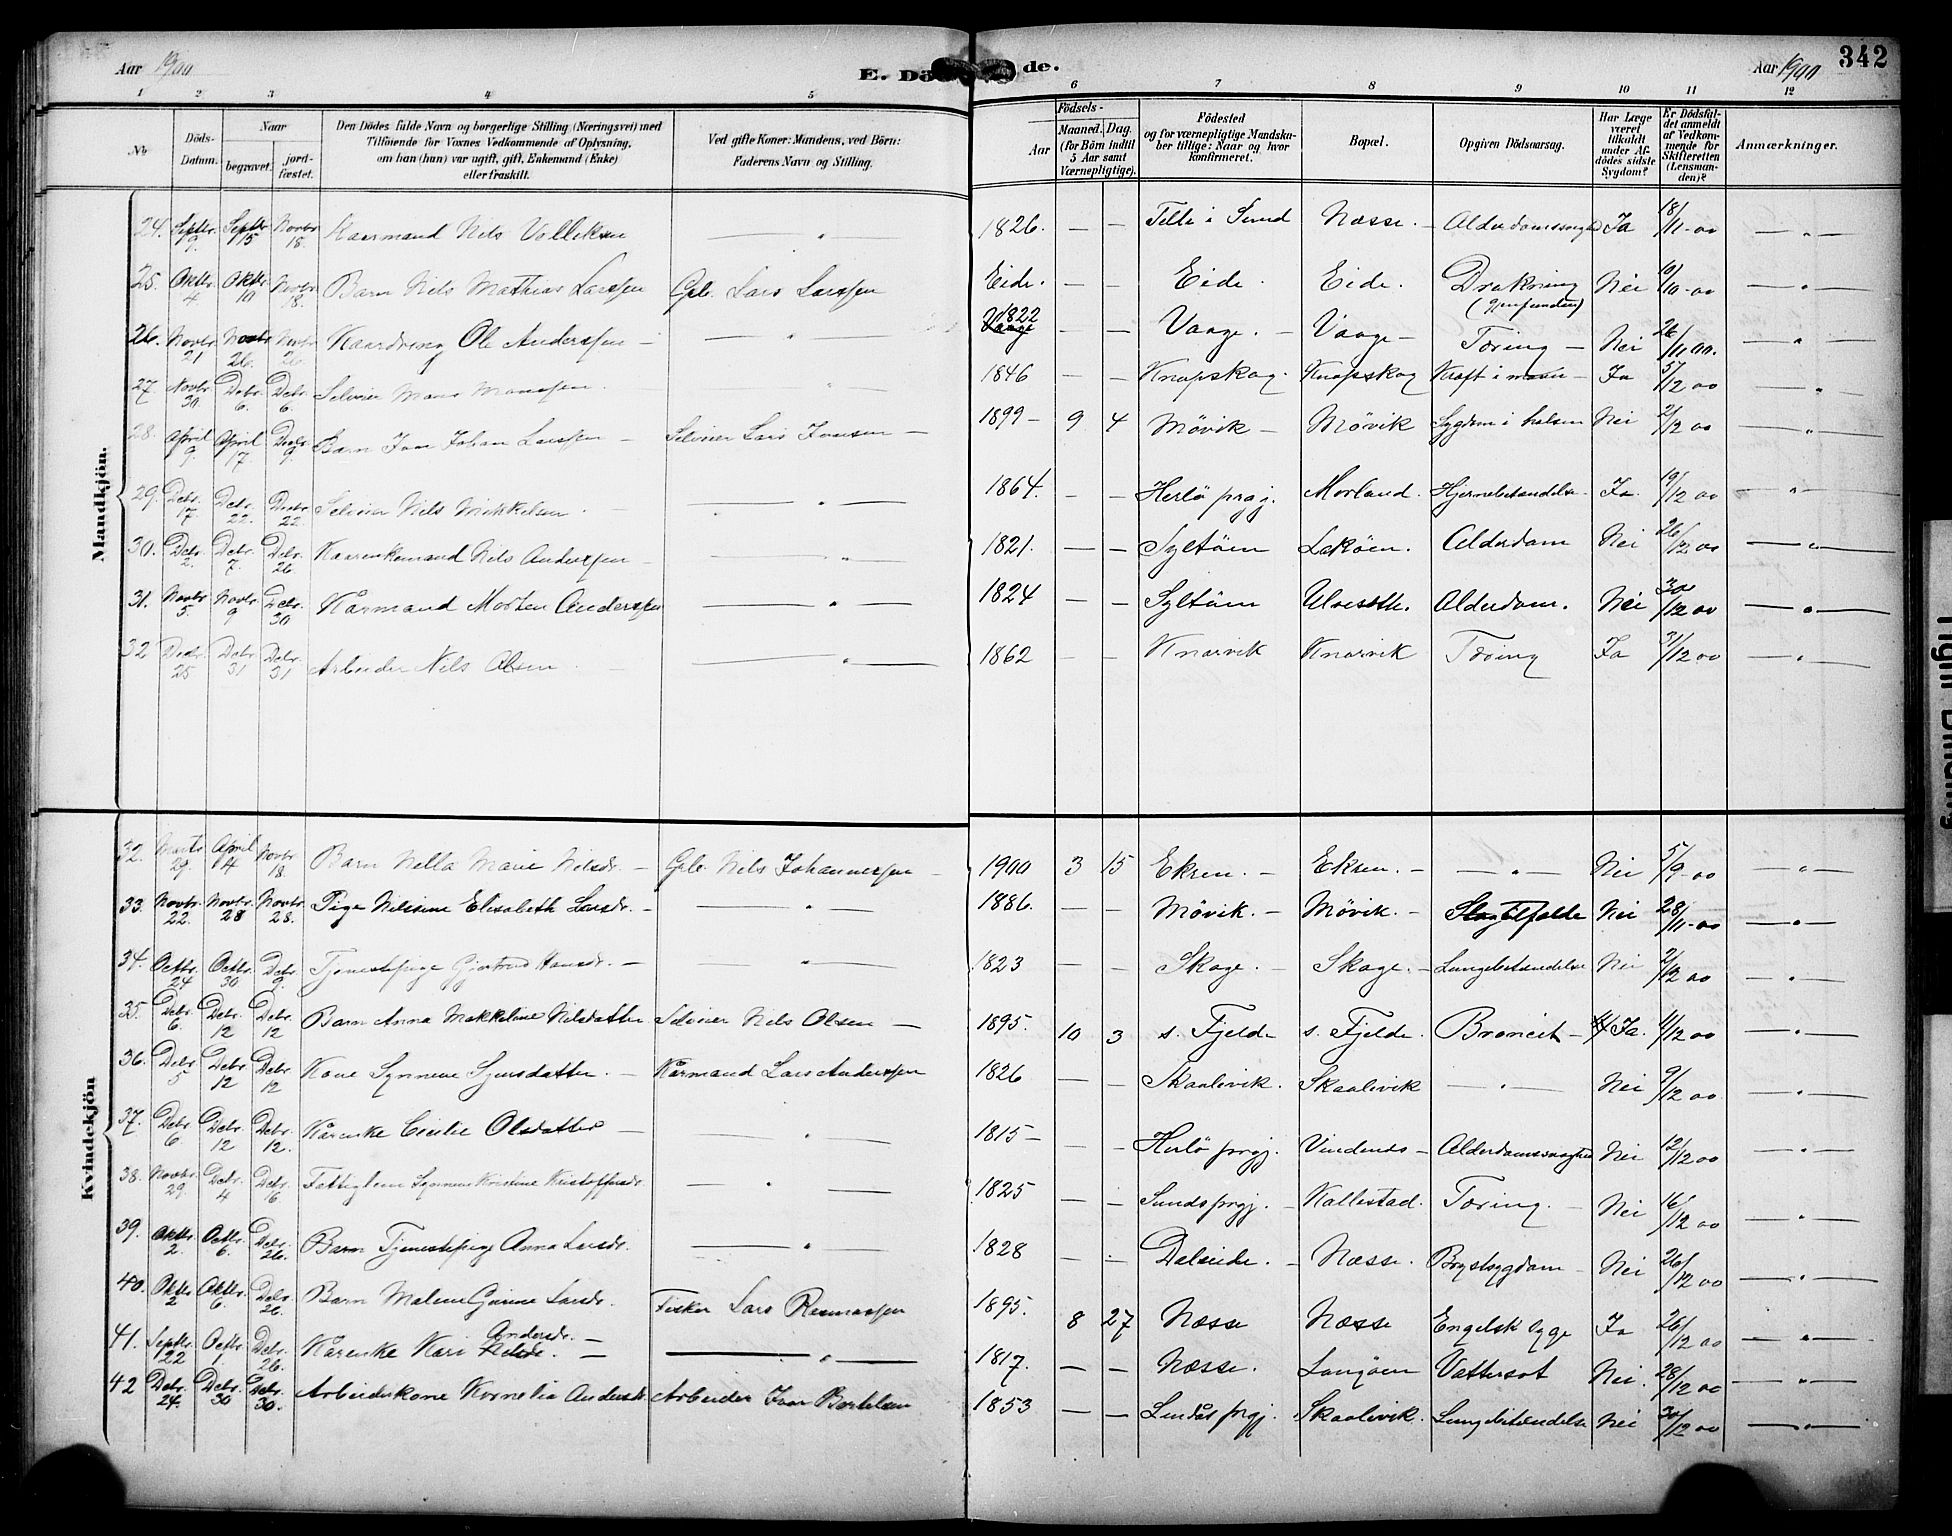 Aar 1900
E. Dö de.
Aar 1900
342
1 2 3 4 5 6 7 8 9 10 11 12
No
Döds-Datum.
Naar
begravet.
jordfæstet.
Den Dödes fulde Navn og borgerlige Stilling (Næringsvei) med
Tilföiende for Voxnes Vedkommende af Oplysning,
om han (hun) var ugift, gift, Enkemand (Enke)
eller fraskilt.
Ved gifte Koner: Mandens, ved Börn:
Faderens Navn og Stilling.
Födsels-
Aar
Maaned. Dag.
(for Börn indtil
5 Aar samt
Værnepligtige).
Födested
og for værnepligtige Mandska-
ber tillige: Naar og hvor
konfirmeret.
Bopæl.
Opgiven Dödsaarsag.
Har Læge
været
tilkaldt
under Af-
dödes sidste
Sygdom?
Er Dödsfal-
det anmeldt
af Vedkom-
mende for
Skifteretten
(Lensman-
den)?
Anmærkninger.
Mandkjön.
24. Septbr. 9. Septbr 15 Novbr 18. Kaarmand Nils — „ — 1826. — — Telle i Sund Næsse. — Ja 18/11-00 — „ —
25. Oktbr. 4 Oktbr. 10 Novbr 18. Barn Nils Mathias Larssen Gbr. Lars Larssen Eide. — — Eide. Eide. Drukning Nei 10/10-00 — „ —
26. Novbr. 21 Novbr 26. Novbr 26 Ole Anderssen — — „ — 1822 — — Vaage. — Vaage — Tæring — Nei 26/11 00. — „ —
27. Novbr. 30. Debr. 6. Debr. 6. Selveier Mons Monssen. 1846 — — Knapskog. Knapskog Kræft i maven — Ja 5/12 00 — „ —
28. April 9. April 17 Debr. 9. Barn Ivar Johan Larssen — Selveier Lars Ivarsen — 1899 — 9 4 Mövik — Mövik Sygdom i halsen Nei 2/12 00 — „ —
29. Debr. 17. Debr. 22. Debr. 22. Selveier Nils Mikkelsen — „ — 1864. — — Herlö prgj. Morland. Hjernebetændelse Ja 19/12 00 — „ —
30. Debr. 2. Debr. 7. Debr. 26. Kaarenkemand Nils Anderssen — — „ — 1821. — — Syltöen Loköen. Alderdom Nei 26/12 00 — „ —
31. Novbr 5. Novbr. 9 Debr. 30 Kårmand Morten Anderssen — „ — 1824 — — Syltöen Alderdom. Nei 30/12 00 — „ —
32 Debr. 25 Debr. 31 Debr. 31 Arbeider Nils Olsen — „ — 1862 — — Knarvik Knarvik Tæring Ja 31/12 00 — „ —
Kvindekjön
32. Marts 29. April 14 Novbr. 18. Barn Nella Marie Nilsdr. — Gbr. Nils Johannessen — 1900 3 15 Ekren. — Ekren. — — „ — Nei 5/9-00 „
33. Novbr. 22. Novbr. 28 Novbr. 28. Pige Nilsine Elisabeth Larsdr. — — „ — 1886. — — Mövik. — Mövik. — Nei 28/11-00 — „ —
34. Octbr. 24 Octbr. 30 Debr. 9. Tjenestepige Gjertrud Hansdr. — — „ — 1823 — — Skoge. — Skoge. — Lungebetændelse Nei 2/12 00 — „ —
35. Debr. 6. Debr. 12 Debr. 12 Barn Anna Mekkeline Nilsdatter Selveier Nils Olsen — 1895. 10 3 s. Fjelde s. Fjelde. Broncit — Ja. 11/12 00 — „ —
36. Debr 5 Debr. 12 Debr. 12 Kone Synneve Sjursdatter. — Kårmand Lars Anderssen 1826 — — Skaalevik. Skaalevik — „ — Nei 9/12 00 — „ —
37. Debr. 6 Debr. 12 Debr. 12. Kårenke Cecilie Olsdatter — — „ — 1815 — — — Herlö prgj. Vindenes — Nei 12/12 00 — „ —
38. Novbr. 29. Debr. 4 Debr. 16 Fattiglem Kristine Kristoffersdr. — „ — 1825 — — Sunds prgj. — Kallestad. Tæring. — Nei 16/12 00 — „ —
39. Oktbr. 2. Octbr. 6. Debr. 26. Barn Tjenestepige Anna Larsdr. — „ — 1828 — — Dalseide. — Næsse. Brystsygdom — Nei 26/12 00 — „ —
40. Oktbr. 2 Oktbr. 6. Debr. 26. Barn Malene Larsdr. Fisker Lars Rasmussen 1895. 8 27 Næsse Næsse Engelsk syge Ja 26/12 00 — „ —
41. Septbr. 22 Octbr. 1. Debr. 26. Kårenke Kari Andersdr. — — „ — 1817. — — Næsse. Langöen Vattersot Nei. 28/12 00 — „ —
42 Debr. 24. Debr. 30 Debr. 30. Arbeiderkone Kornelia Andersdr. Arbeider Ivar Bertelsen 1853 — — Lindås prgj. Skaalevik. Lungebetændelse Nei 30/12 00 — „ —